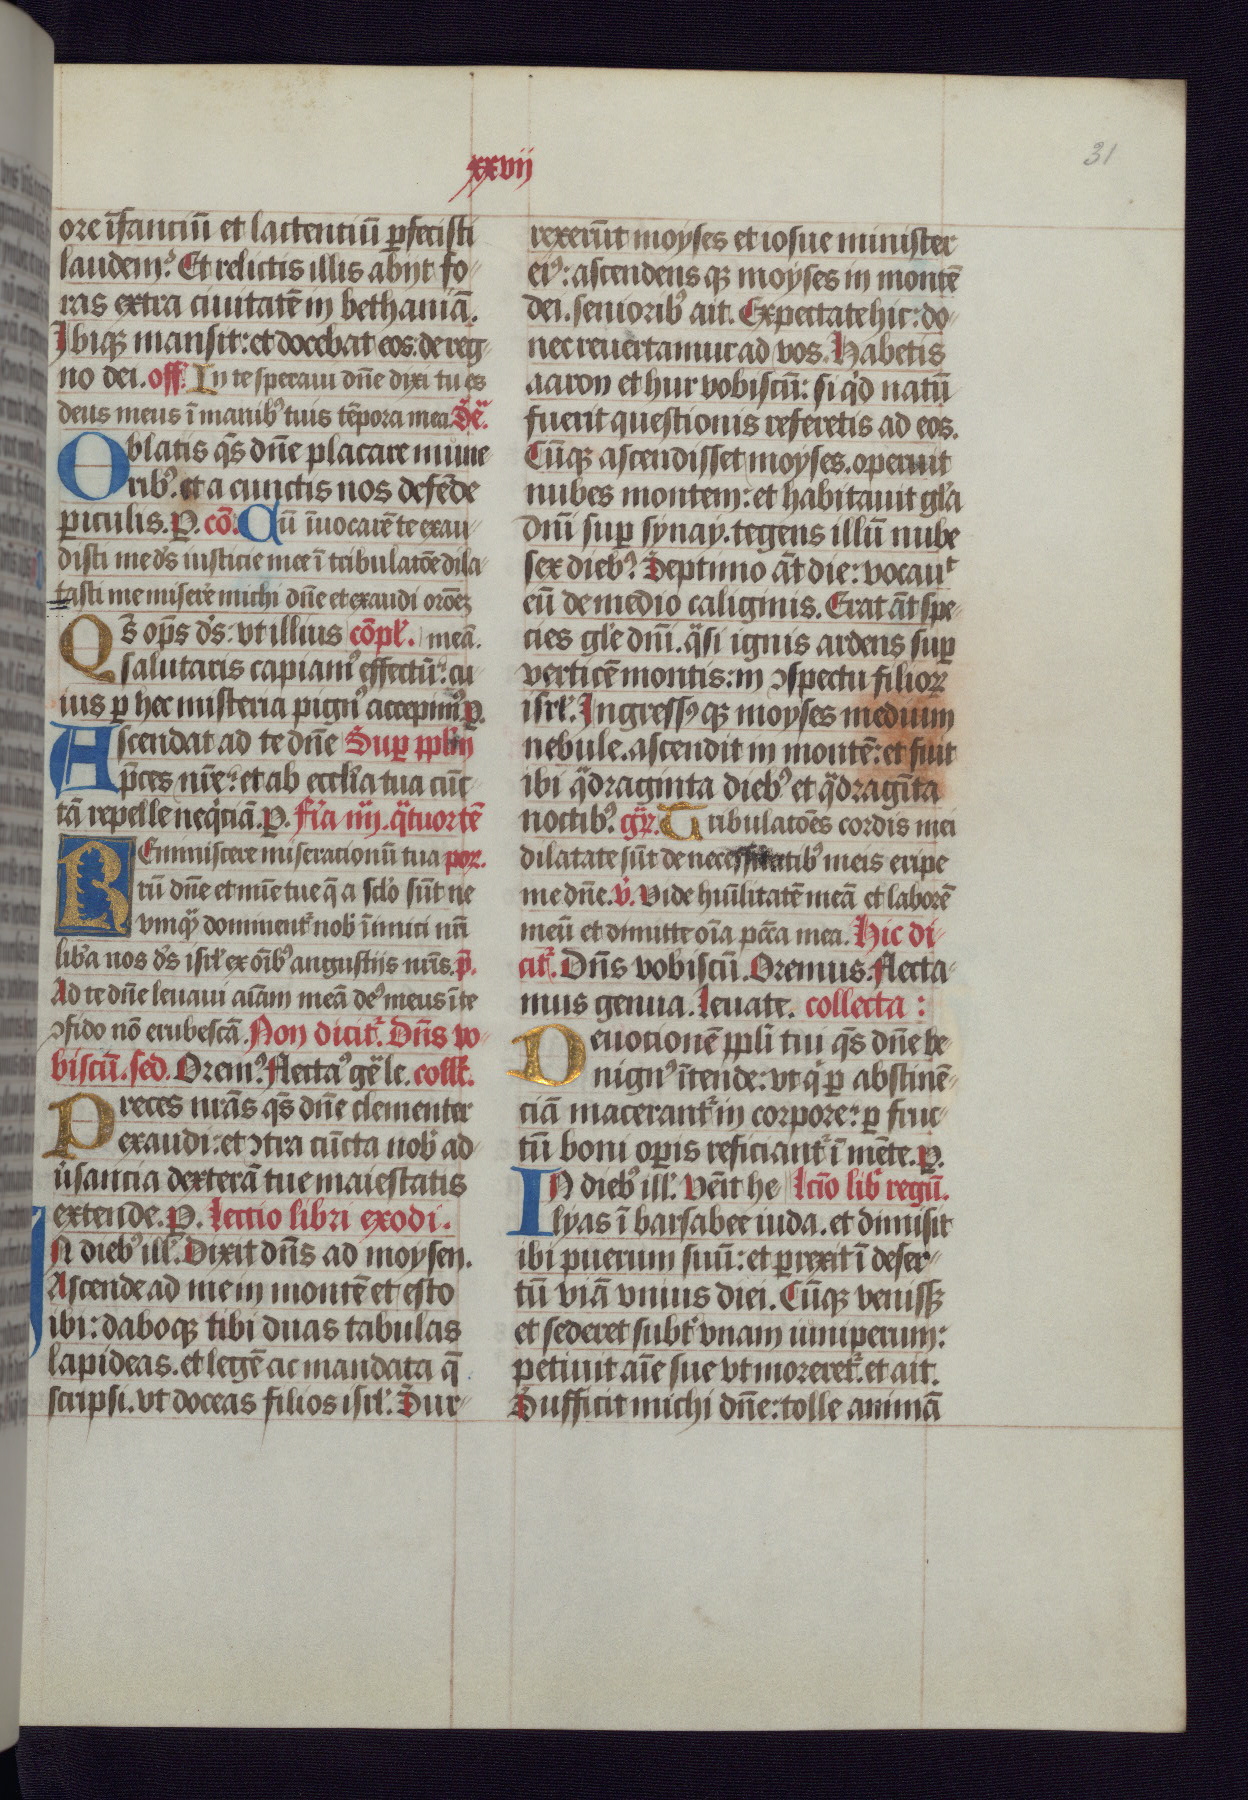 xxvij
31
ore īfanciū et lactenciū ꝑfecisti
laudem? Et relictis illis abijt fo-
ras extra ciuitatē in bethaniā.
Ibiqꝫ mansit: et docebat eos. de reg-
no dei. off. In te speraui dn̄e dixi tu es
deus meus ī manibꝰ tuis tēpora mea. S̄eᷓ.
Oblatis q̄s dn̄e placare mune
ribꝰ. et a cunctis nos defēde
ꝑiculis. P. cō. Cū īuocarē te exau-
disti me dꝰs iusticie mee ī tribulacōe dila-
tasti me miserē michi dn̄e et exaudi orōeꝫ
Q̄s op̄s dꝰs: vt illius cōpl'. meā.
salutaris capiamꝰ effectū: cu
ius ꝑ hec misteria pignꝰ accepimꝰ. P.
Ascendat ad te dn̄e Suꝑ ppl'm
p̄ces nr̄e: et ab eccl'ia tua cūc
tā repelle neq̇ciā. P. fr̄ia iiij. q̈tuor tē
Reminiscere miseracionū tua por.
rū dn̄e et mīe tue q̄ a sclo sūt ne
vmq̈ dominent᷑ nob' īimici nr̄i
lib'a nos dꝰs isrl' ex ōibꝰ angustijs nr̄is. p̄.
Ad te dn̄e leuaui aīam meā deꝰ meus ī te
ↄfido nō erubescā. Non dicit᷑. Dn̄s vo-
biscū. sed. Oremꝰ. flectaꝰ gēle. coll'.
Preces nr̄as q̄s dn̄e clementer
exaudi: et ↄtra cūcta nob' ad-
u'sancia dexterā tue maiestatis
extende. P. lectio libri exodi.
In diebꝰ ill'. Dixit dn̄s ad moysen.
Ascende ad me in montē et esto
ibi: daboqꝫ tibi duas tabulas
lapideas. et legē ac mandata q̄
scripsi. vt doceas filios isrl'. Sur-
rexerūt moyses et iosue minister
eiꝰ: ascendens qꝫ moyses in montē
dei. senioribꝰ ait. Expectate hic: do-
nec reuertamur ad vos. Habetis
aaron et hur vobiscū: si q'd natū
fuerit questionis referetis ad eos.
Cūqꝫ ascendisset moyses. operuit
nubes montem: et habitauit gl'a
dn̄i suꝑ synay. tegens illū nube
sex diebꝰ. Septimo āt die: vocauᵗ
eū de medio caliginis. Erat āt spe-
cies gl'e dn̄i. q̈si ignis ardens suꝑ
verticē montis: in ↄspectu filioꝝ
isrl'. Ingressꝰqꝫ moyses medium
nebule. ascendit in montē: et fuit
ibi q̈draginta diebꝰ et q̈dragīta
noctibꝰ. gr̄. Tribulacōes cordis mei
dilatate sūt de necessitatibꝰ meis eripe
me dn̄e. v̇. Vide hūilitatē meā et laborē
meū et dimitte oīa pc̄ca mea. Hic di-
cit᷑. Dn̄s vobiscū. Oremus. flecta-
mus genua. leuate. collecta:
Deuocionē ppl'i tui q̄s dn̄e be-
nignꝰ ītende: vt q' ꝑ abstinē-
ciā macerant᷑ in corpore: ꝑ fruc-
tū boni oꝑis reficiant᷑ ī mēte. P.
In diebꝰ ill'. Vēit he lcīo lib' regū.
lyas ī barsabee iuda. et dimisit
ibi puerum suū: et ꝑrexit ī deser-
tū viā vnius diei. Cūqꝫ venissꝫ
et sederet subt' vnam iuniperum:
petiuit aīe sue vt moreret᷑. et ait.
Sufficit michi dn̄e: tolle animā